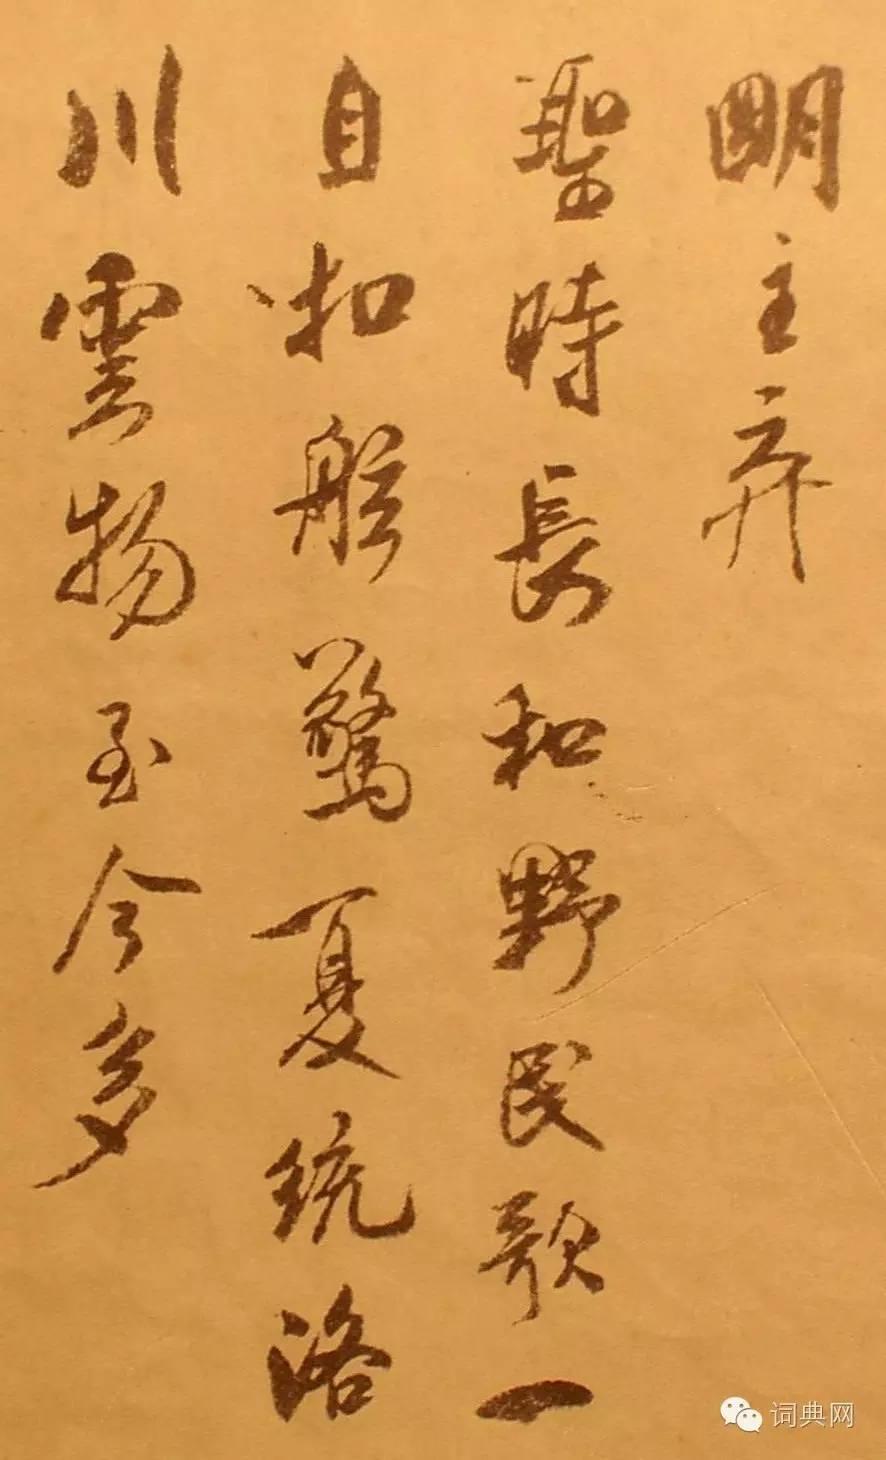 明主弃
聖時長和野民歌一
自扣舷驚夏統洛
川雲物至今多
词典网